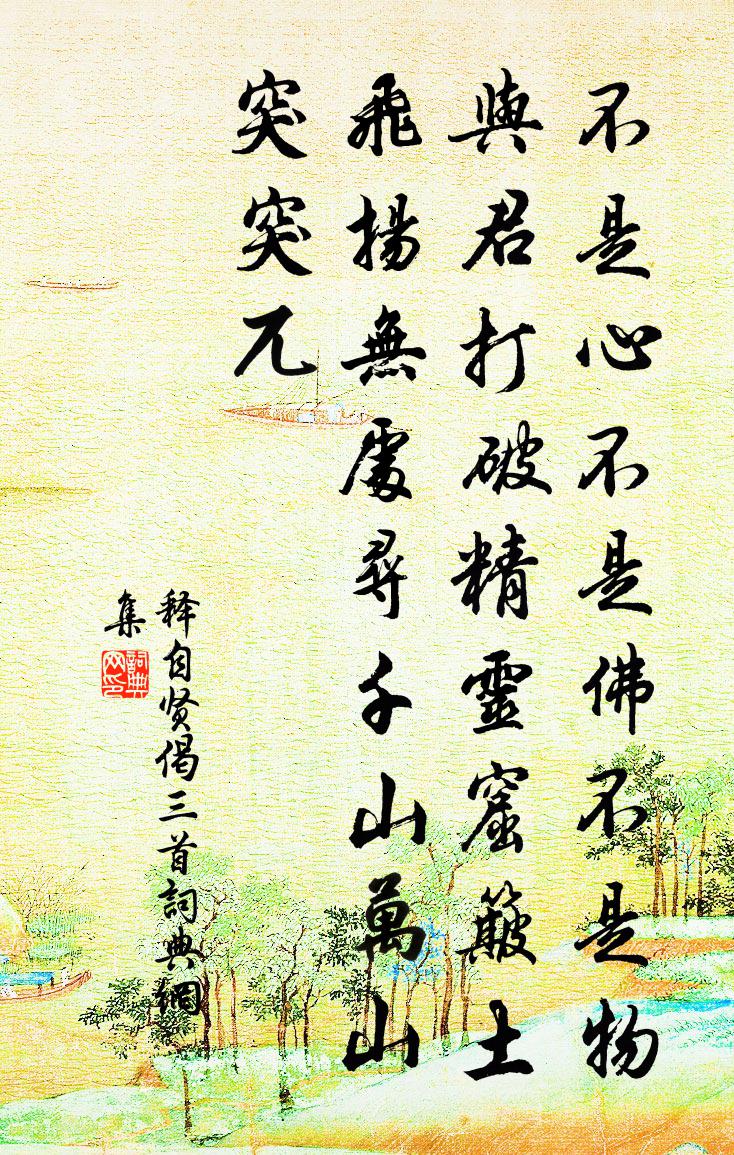 不是心不是佛不是物
與君打破精靈窟簸土
飛揚無處尋千山萬山
突突兀
释自贤偈三首詞典網
集
詞典
网印